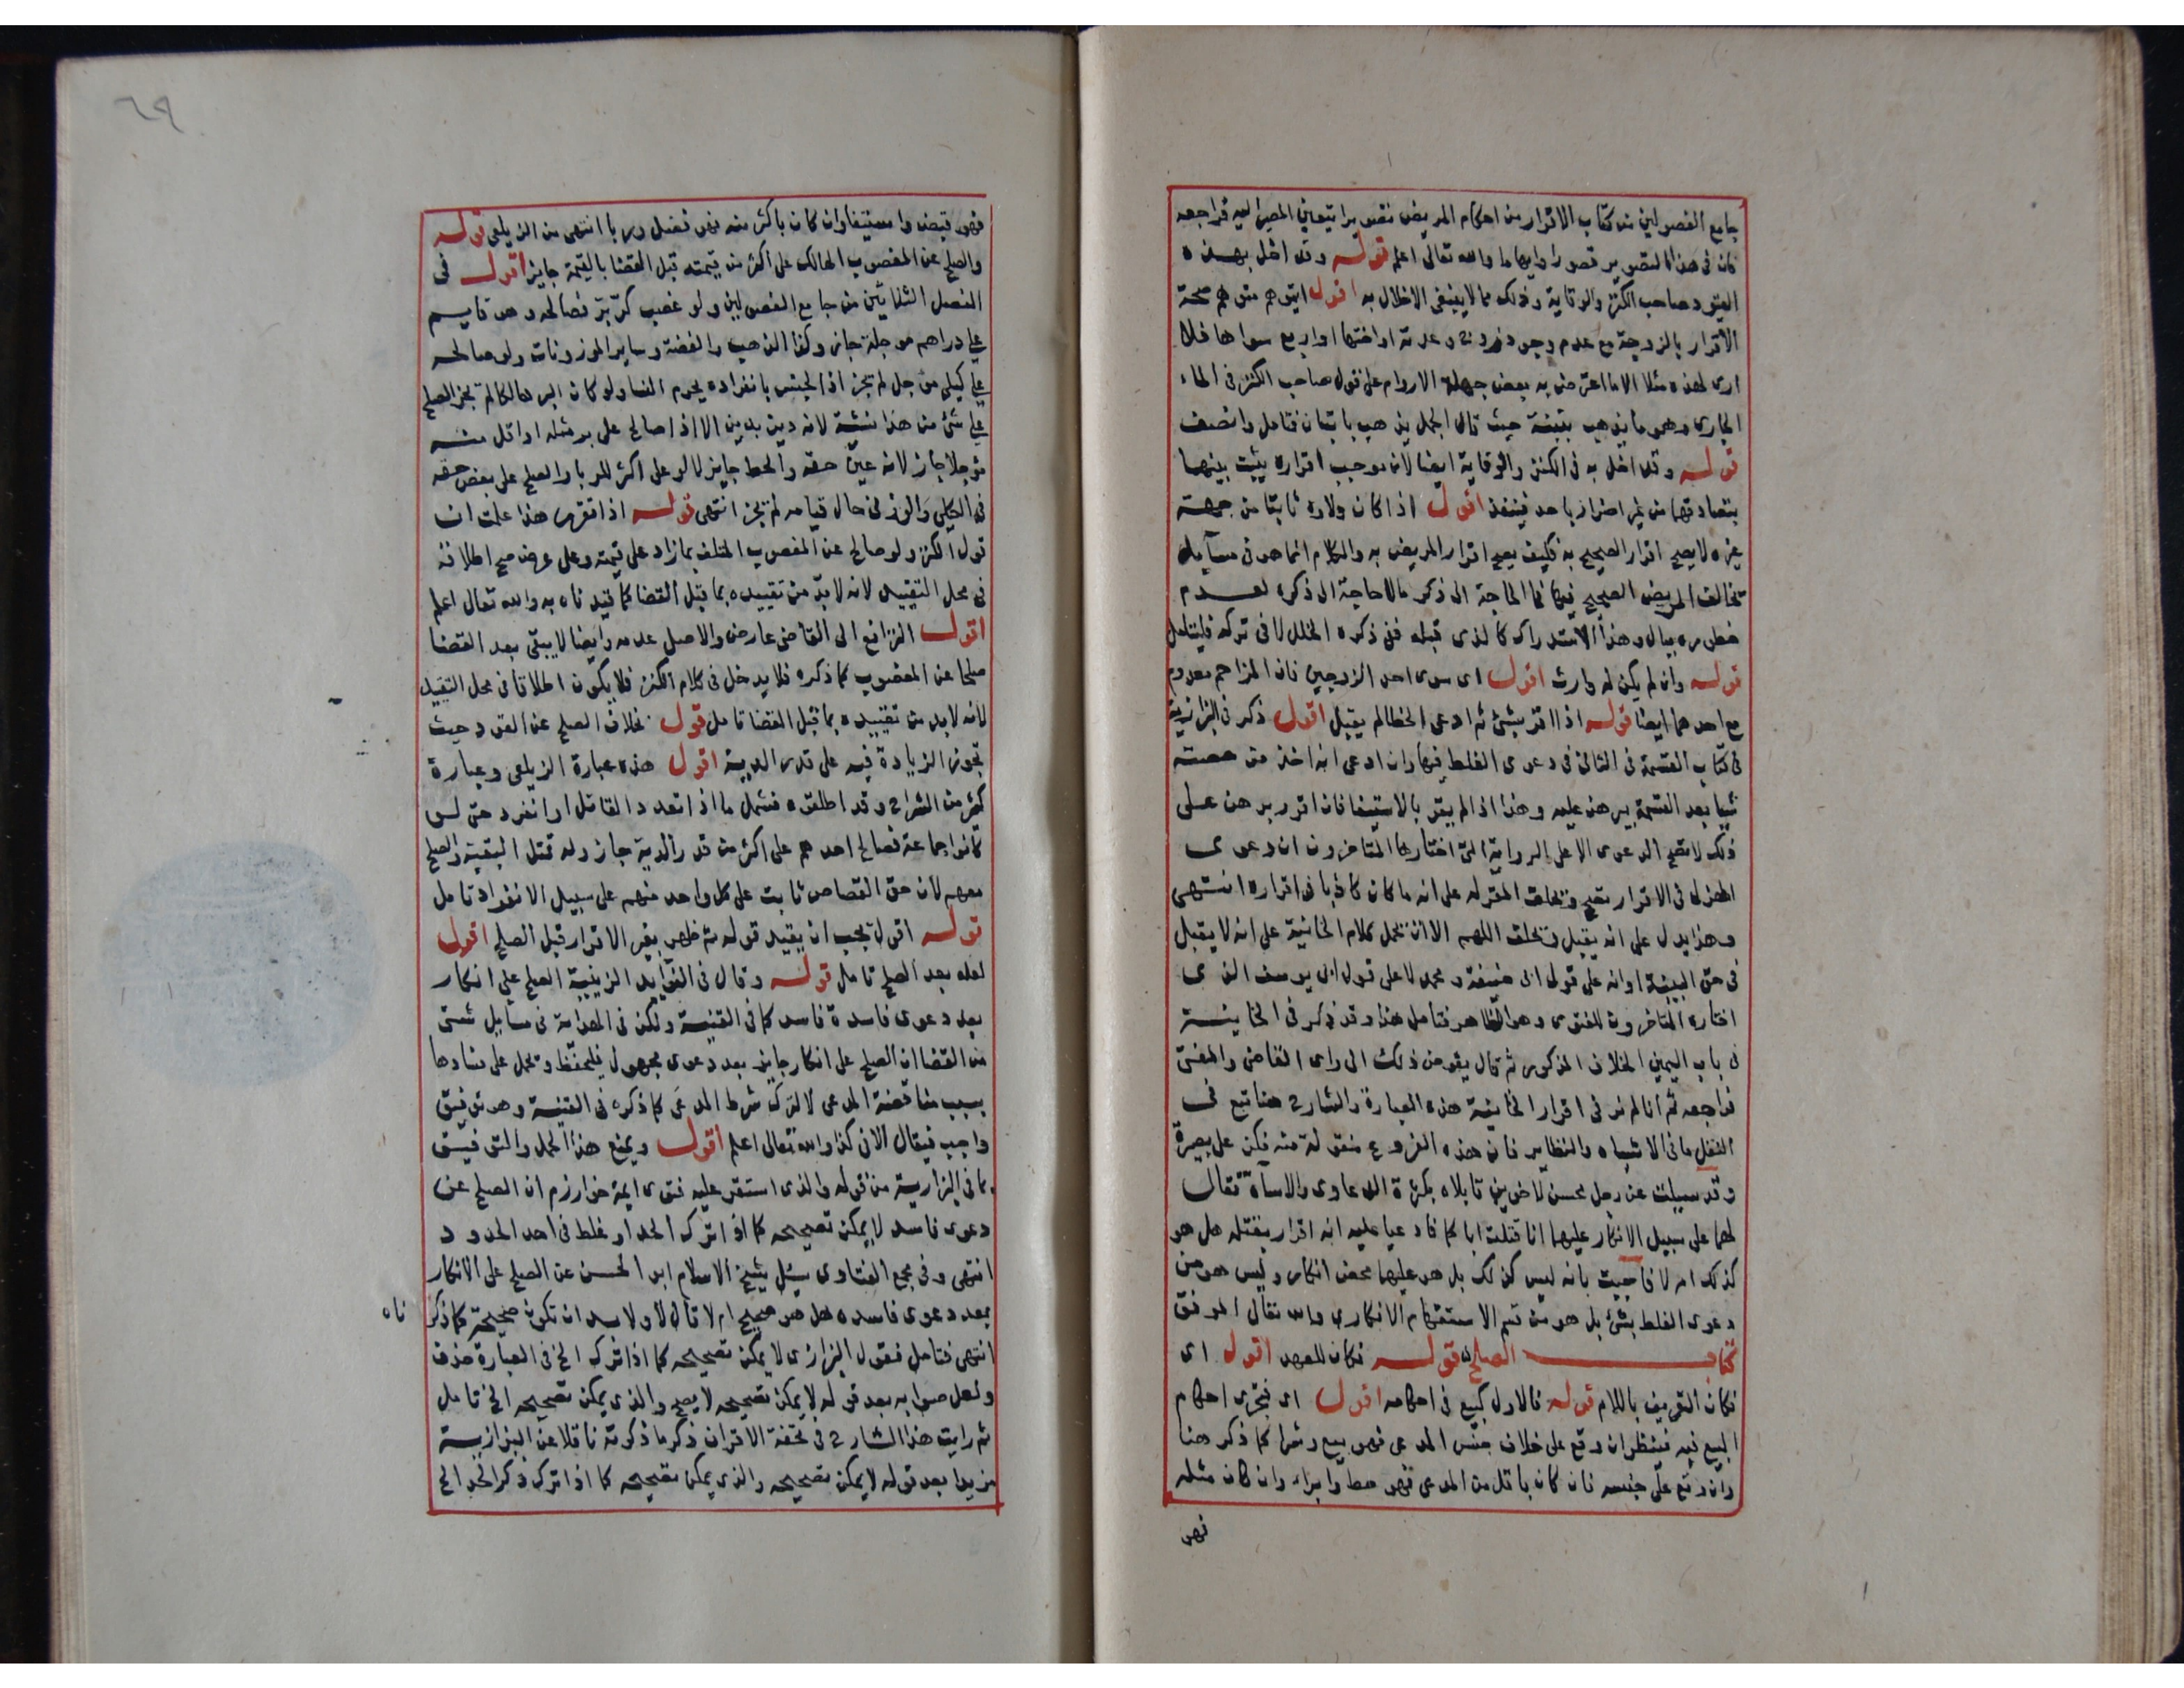 جامع الفصولين من كتاب الاقرار من احكام المريض تصويرا يتعين المصير اليه فراجعه
فان في هذا التصوير قصورا وايهاما والله تعالى اعلم قوله وقد اخل بهذه
القيود صاحب الكنز والوقاية وذلك مما لا ينبغي الاخلال به اقول ايتوهم متوهم صحة
الاقرار بالزوجة مع عدم وجود زوج وعدته او اختها او اربع سواها فلا
ارى لهذه مثلا الا ما اعترض به بعض جهلة الاروام على قول صاحب الكنز في الماء
الجارى وهو ما يذهب بتبنة حيث قال الجمل يذهب باتبان فتامل وانصف
قوله وقد اخل به في الكنز والوقاية ايضا لان موجب اقراره يثبت بينهما
بتصادقهما من غير اضرار باحد فينفذ اقول اذا كان ولاوه ثابتا من جهة
غيره لا يصح اقرار الصحيح به فكيف يصح اقرار المريض به والكلام انما هو في مسايل
تخالف المريض الصحيح فيها فما الحاجة الى ذكر مالا حاجة الى ذكره لعدم
خطوره ببال وهذا الاستدراك كالذى قبله ففي ذكره الخلل لا في تركه فليتامل
قوله وان لم يكن له وارث اقول اى سوى احد الزوجين فان المزاحم معدوم
مع احدهما ايضا قوله اذا اقر بشئ ثم ادعى الخطا لم يقبل اقول ذكر في البزازية
في كتاب القسمة في الثاني في دعوى الغلط فيها وان ادعى انه اخذ من حصته
شيا بعد القسمة يبرهن عليه وهذا اذا لم يقر بالاستيفا فان اقر وبرهن على
ذلك لا تصح الدعوى الا على الرواية التي اختارها المتاخرون ان دعوى
الهزل في الاقرار تصح ويحلف المقر له على انه ما كان كاذبا في اقراره انتهى
وهذا يدل على انه يقبل ويحلف اللهم الا ان يحمل كلام الخانية على انه لا يقبل
في حق البينة او انه على قول ابى حنيفة ومحمد لا على قول ابى يوسف الذى
اختاره المتاخرون للفتوى وهو الظاهر فتامل هذا وقد ذكر في الخانية
في باب اليمين الخلاف المذكور ثم قال يفوض ذلك الى راى القاضى والمفتى
فراجعه ثم انا لم نر في اقرار الخانية هذه العبارة والشارح هنا تبع في
النقل ما في الاشباه والنظاير فان هذه الفروع منقولة منه فكن على بصيرة
وقد سيلت عن رجل محسن لاخوين قابلاه بكثرة الدعاوى والاساة فقال
لهما على سبيل الانكار عليهما انا قتلت اباكما فادعيا عليه انه اقرار بقتله هل هو
كذلك ام لا فاجبت بانه ليس كذلك بل هو عليهما محض انكار وليس هو من
دعوى الغلط بشئ بل هو من قسم الاستفهام الانكارى والله تعالى الموفق
كتاب الصلح قوله فكان للعهد اقول اى
فكان التعريف باللام قوله فالاول كبيع في احكامه اقول اى فتجرى احكام
البيع فيه فينظر ان وقع على خلاف جنس المدعى فهو بيع وشرا كما ذكر هنا
وان وقع على جنسه فان كان باقل من المدعى فهو حط وابراء وان كان مثله
فهو
٦٩
فهو قبض واستيفا وان كان باكثر منه فهو فضل وربا انتهى من الزيلعى قوله
والصلح عن المغصوب الهالك على اكثر من قيمته قبل القضا بالقيمة جايز اقول في
الفصل الثلاثين من جامع الفصولين ولو غصب كر بر فصالحه وهو قايم
على دراهم موجلة جاز وكذا الذهب والفضة وساير الموزونات ولو صالحه
على كيلى موجل لم يجز اذ الجنس بانفراده يحرم النسا ولو كان البر هالكا لم يجز الصلح
على شئ من هذا نسئة لانه دين بدين الا اذا صالح على بر مثله او اقل منه
موجلا جاز لانه عين حقه والحط جايز لا لو على اكثر للربا والصلح على بعض حقه
في الكيلى والوزنى حال قيامه لم يجز انتهى قوله اذا تقرر هذا علمت ان
قول الكنز ولو صالح عن المغصوب المتلف بما زاد على قيمته وعلى عرض صح اطلاقه
في محل التقييد لانه لا بد من تقييده بما قبل القضا كما قيدناه به والله تعالى اعلم
اقول الترافع الى القاضى عارض والاصل عدمه وايضا لا يبقى بعد القضا
صلحا عن المغصوب كما ذكره فلا يدخل في كلام الكنز فلا يكون اطلاقا في محل التقييد
لانه لا بد من تقييده بما قبل القضا تامل قوله بخلاف الصلح عن القود حيث
تجوز الزيادة فيه على قدر الدية اقول هذه عبارة الزيلعى وعبارة
كثير من الشراح وقد اطلقوه فشمل ما اذا تعدد القاتل او انفرد حتى لو
كانوا جماعة فصالح احدهم على اكثر من قدر الدية جاز وله قتل البقية والصلح
معهم لان حق القصاص ثابت على كل واحد منهم على سبيل الانفراد تامل
قوله اقول يجب ان يقيد قوله ثم ظهر بغير الاقرار قبل الصلح اقول
لعله بعد الصلح تامل قوله وقال في الفوايد الزينية الصلح على انكار
بعد دعوى فاسدة فاسد كما في القنية ولكن في الهداية في مسايل شتى
من القضا ان الصلح على انكار جايز بعد دعوى مجهول فليحفظ ويحمل على فسادها
بسبب مناقضة المدعى لا لترك شرط المدعى كما ذكره في القنية وهو توفيق
واجب فيقال الا في كذا والله تعالى اعلم اقول ويمنع هذا الحمل والتوفيق
ما في البزازية من قوله والذى استقر عليه فتوى ايمة خوارزم ان الصلح عن
دعوى فاسد لا يمكن تصحيحه كما اذا ترك الحد او غلط في احد الحدود
انتهى وفي مجمع الفتاوى سئل شيخ الاسلام ابو الحسن عن الصلح على الانكار
بعد دعوى فاسده هل هو صحيح ام لا قال لا ولا بد ان تكون صحيحة كما ذكر
ناه
انتهى فتامل فقول البزازى لا يمكن تصحيحه كما اذا ترك الخ في العبارة حذف
ولعل صوابه بعد قوله لا يمكن تصحيحه لا يصح والذى يمكن تصحيحه الخ تامل
ثم رايت هذا الشارح في تحفة الاقران ذكر ما ذكرته ناقلا عن البزازية
مزيدا بعد قوله لا يمكن تصحيحه والذى يمكن تصحيحه كما اذا ترك ذكر الحد الخ